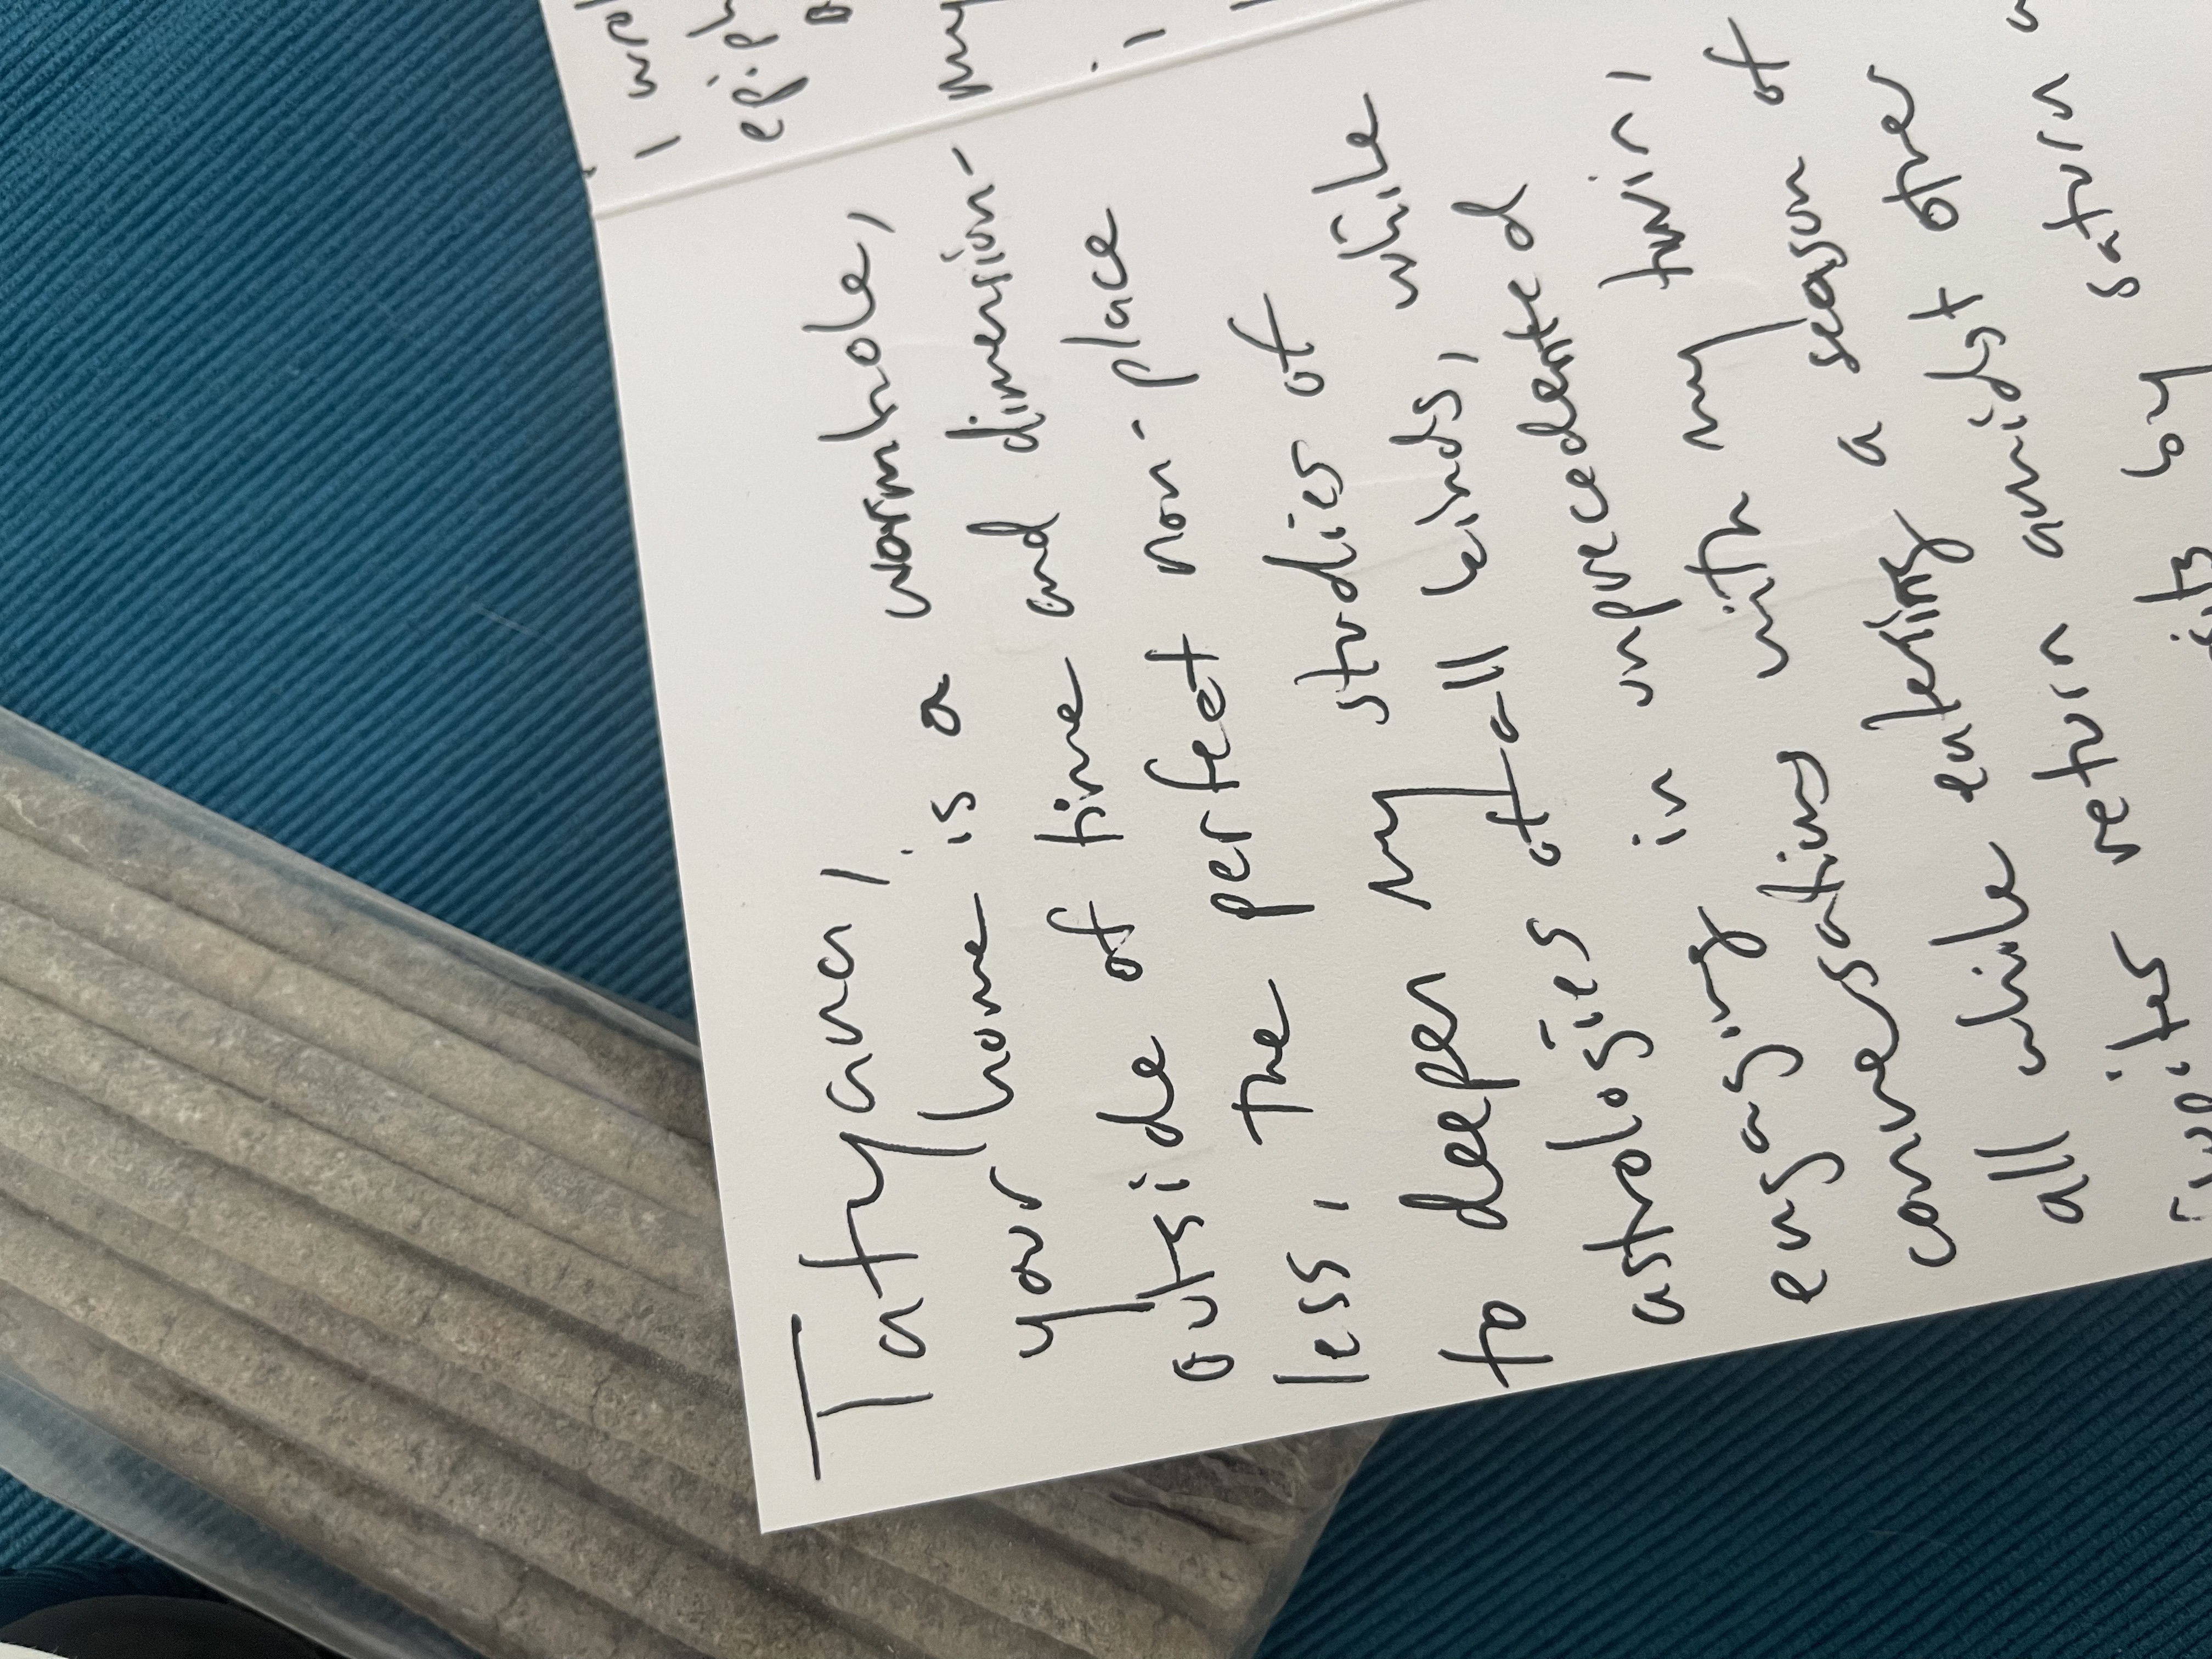 Tatyana,
your home is a wormhole,
outside of time and dimension-
less, the perfect non-place
to deepen my studies of
astrologies of all kinds, while
engaging in unprecedented
conversations with my twin,
all while entering a season of
return amidst other
Saturn
by